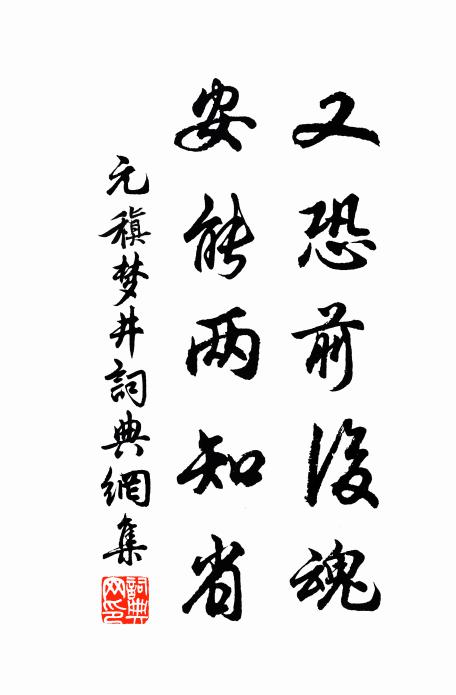 又恐前後魂
安能两知省
元稹梦井詞典網集
詞典网印